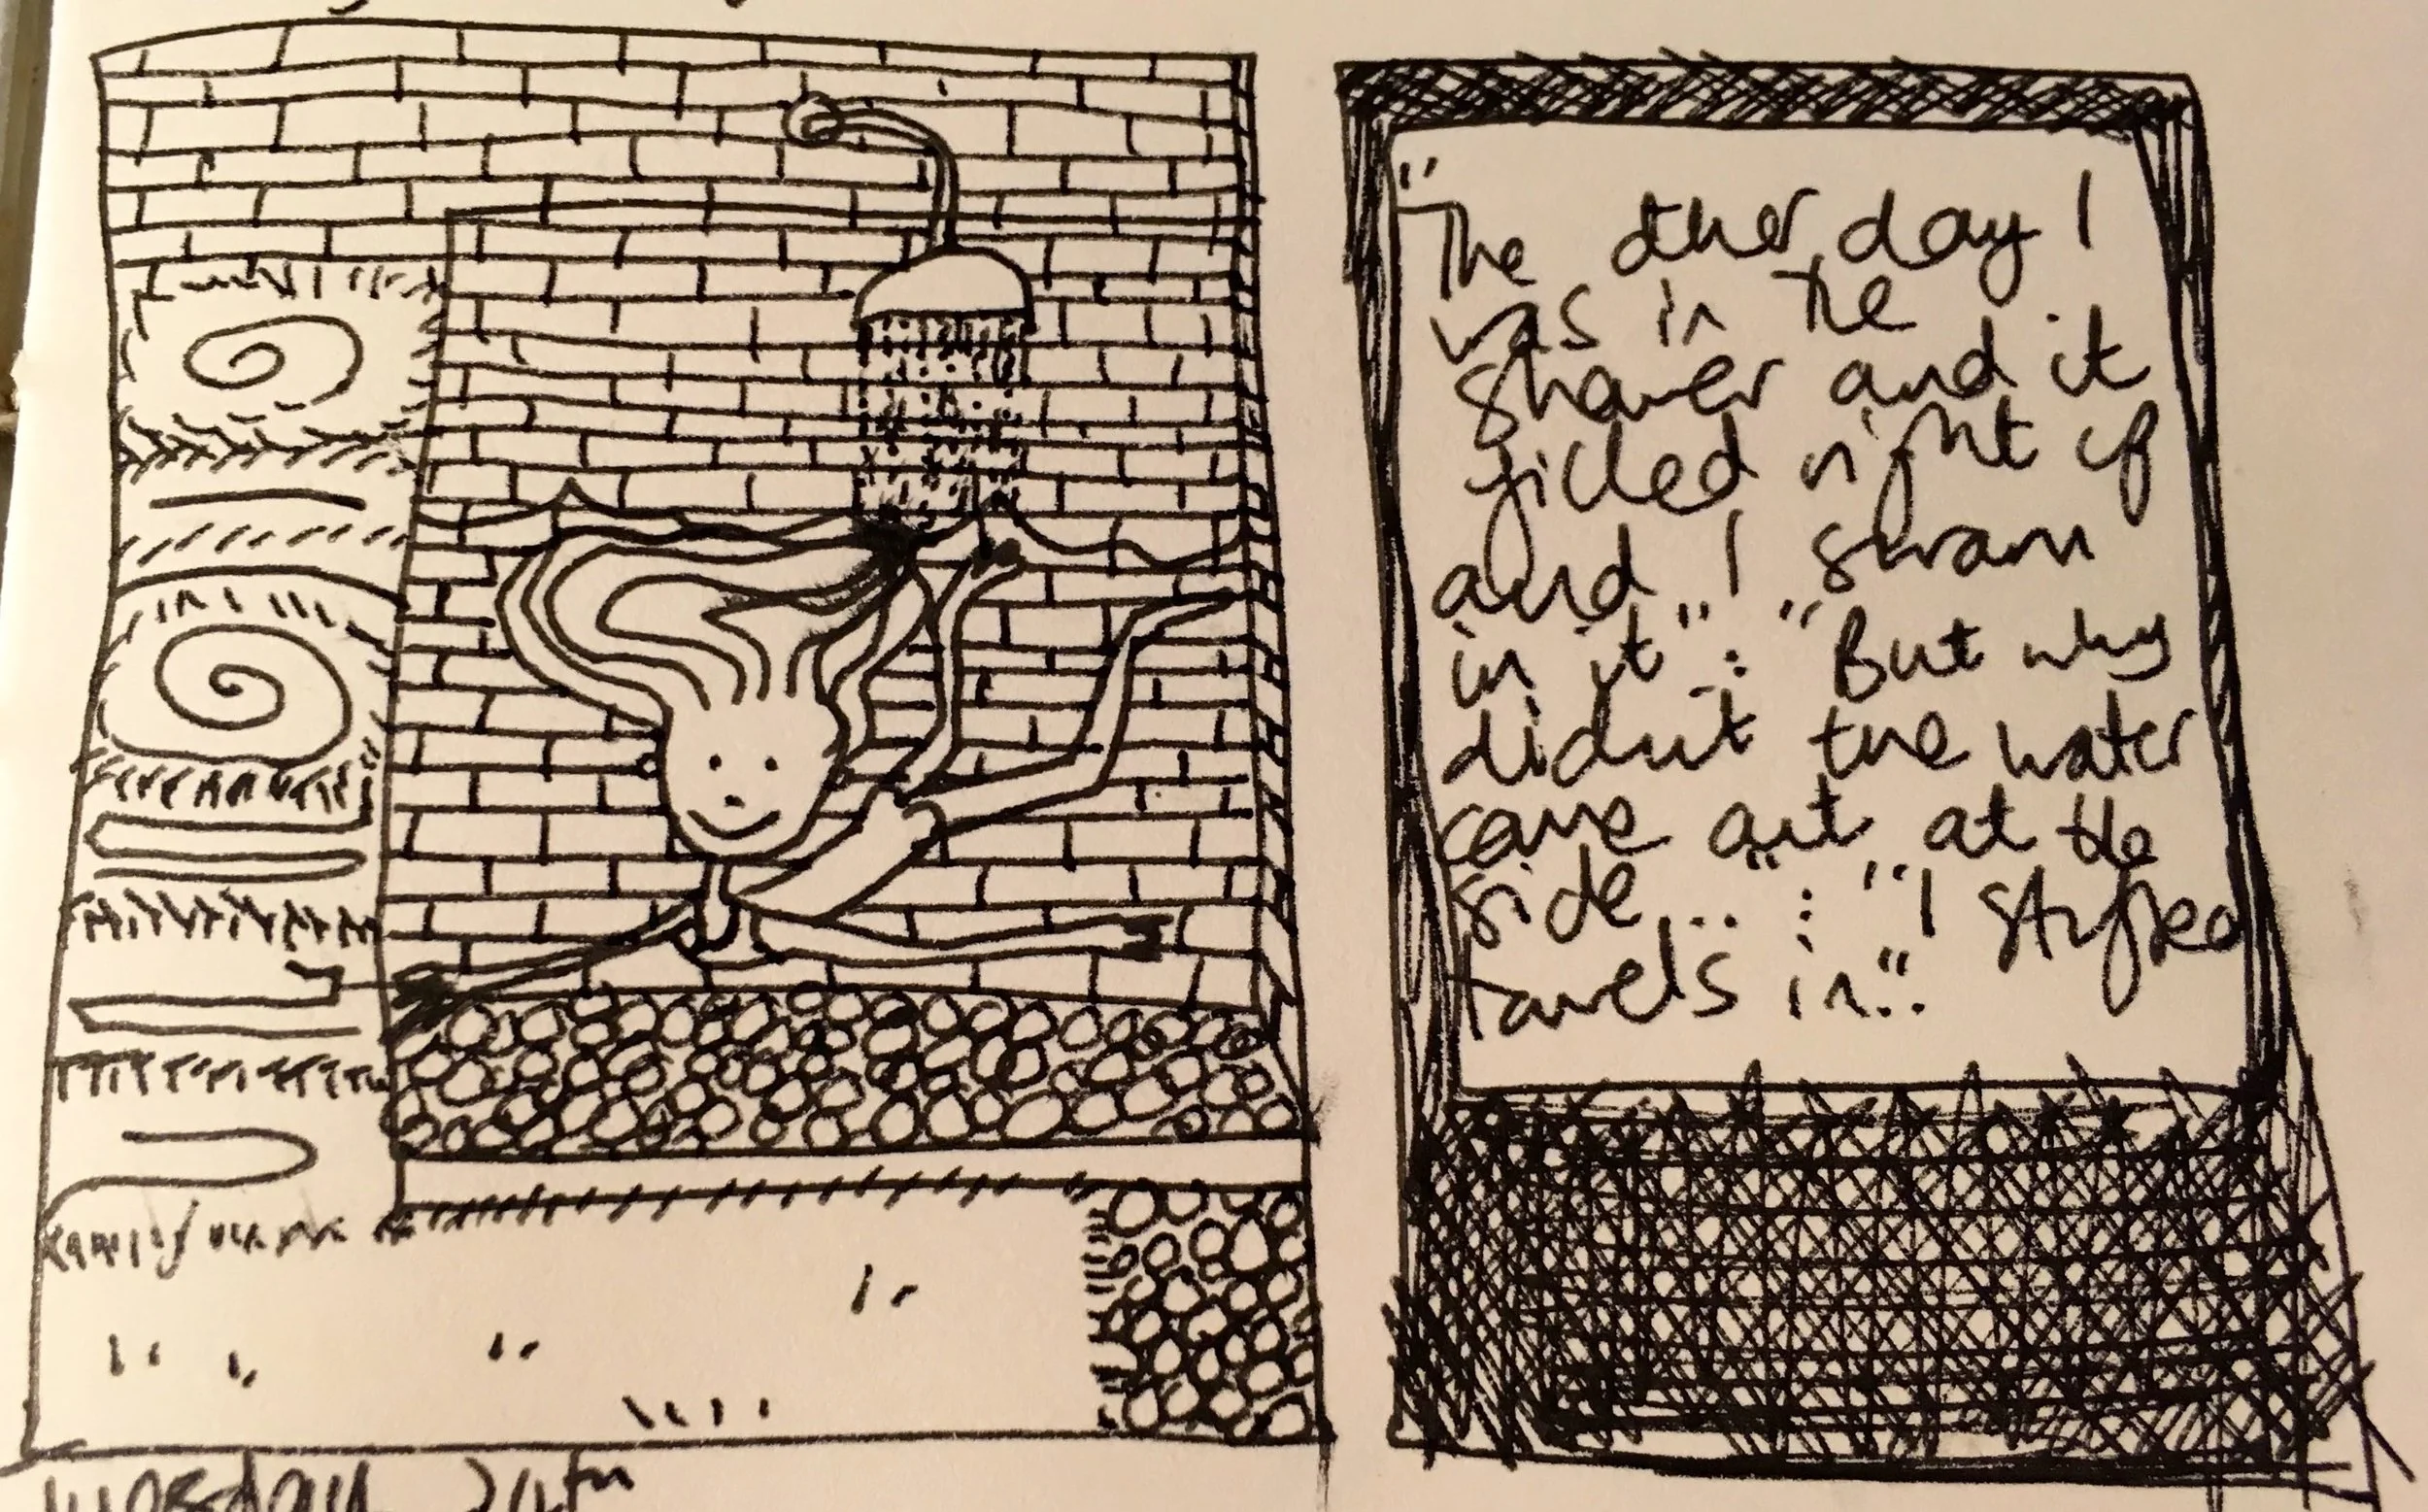 "The other day I
was in the
shower and it
filled right up
and I swam
in it" : "But why
didn't the water
come out at the
side..." : "I stuffed
towels in".
Tuesday 24th